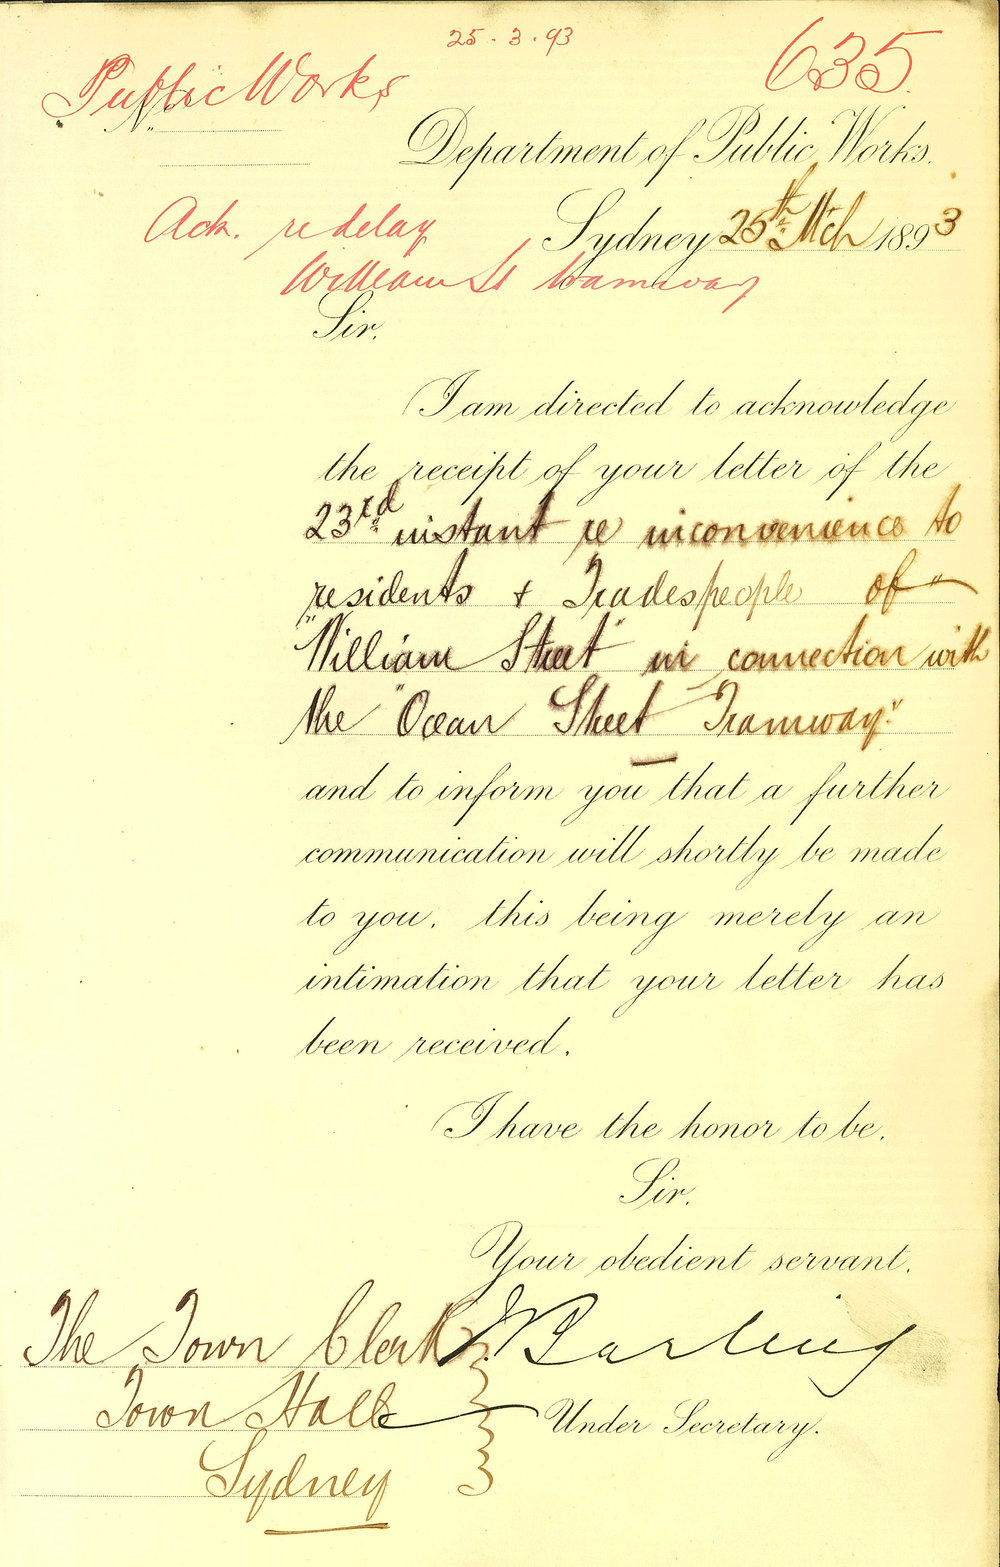 25.3.93
635
Public Works
No.
Department of Public Works.
Sydney 25th Mch 1893
Ack. re delay
William St tramway
Sir.
I am directed to acknowledge
the receipt of your letter of the
23rd instant re inconvenience to
residents & Tradespeople of
"William Street" in connection with
the "Ocean Street Tramway."
and to inform you that a further
communication will shortly be made
to you. this being merely an
intimation that your letter has
been received.
I have the honor to be.
Sir.
Your obedient servant.
J Barling
Under Secretary.
The Town Clerk
Town Hall
Sydney